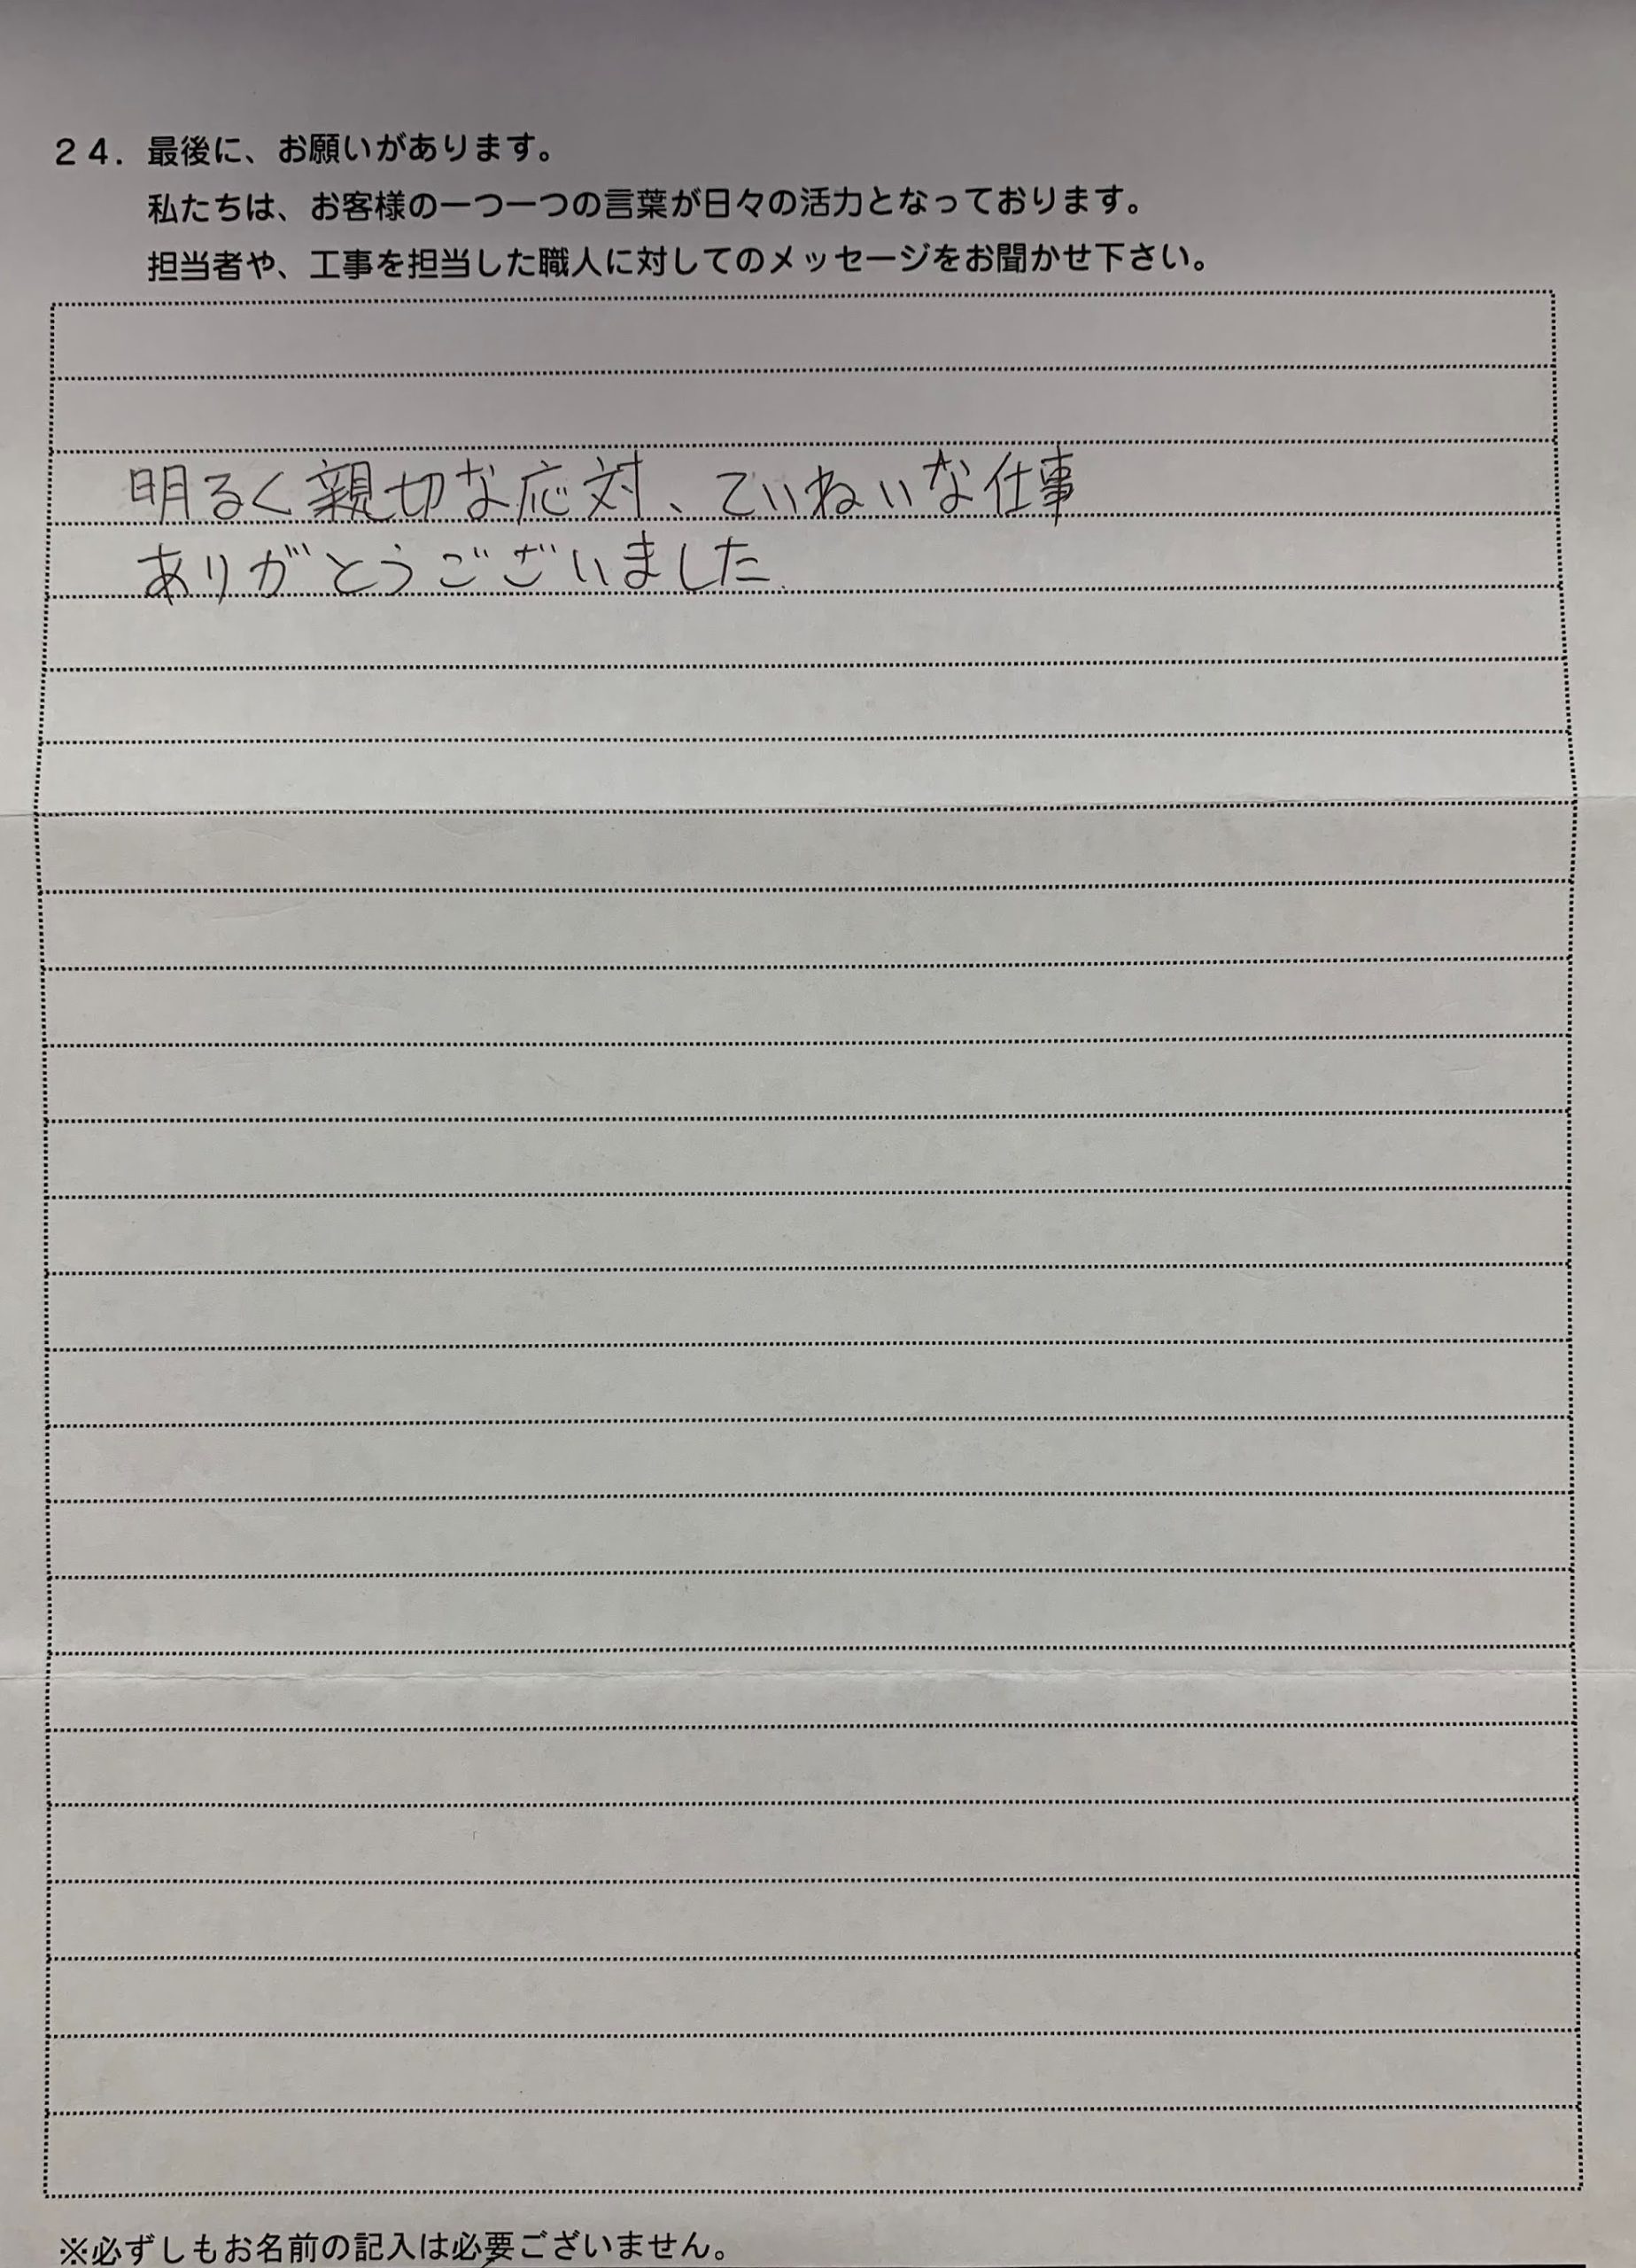 ２４．最後に、お願いがあります。
私たちは、お客様の一つ一つの言葉が日々の活力となっております。
担当者や、工事を担当した職人に対してのメッセージをお聞かせ下さい。
明るく親切な応対、ていねいな仕事
ありがとうございました.
※必ずしもお名前の記入は必要ございません。